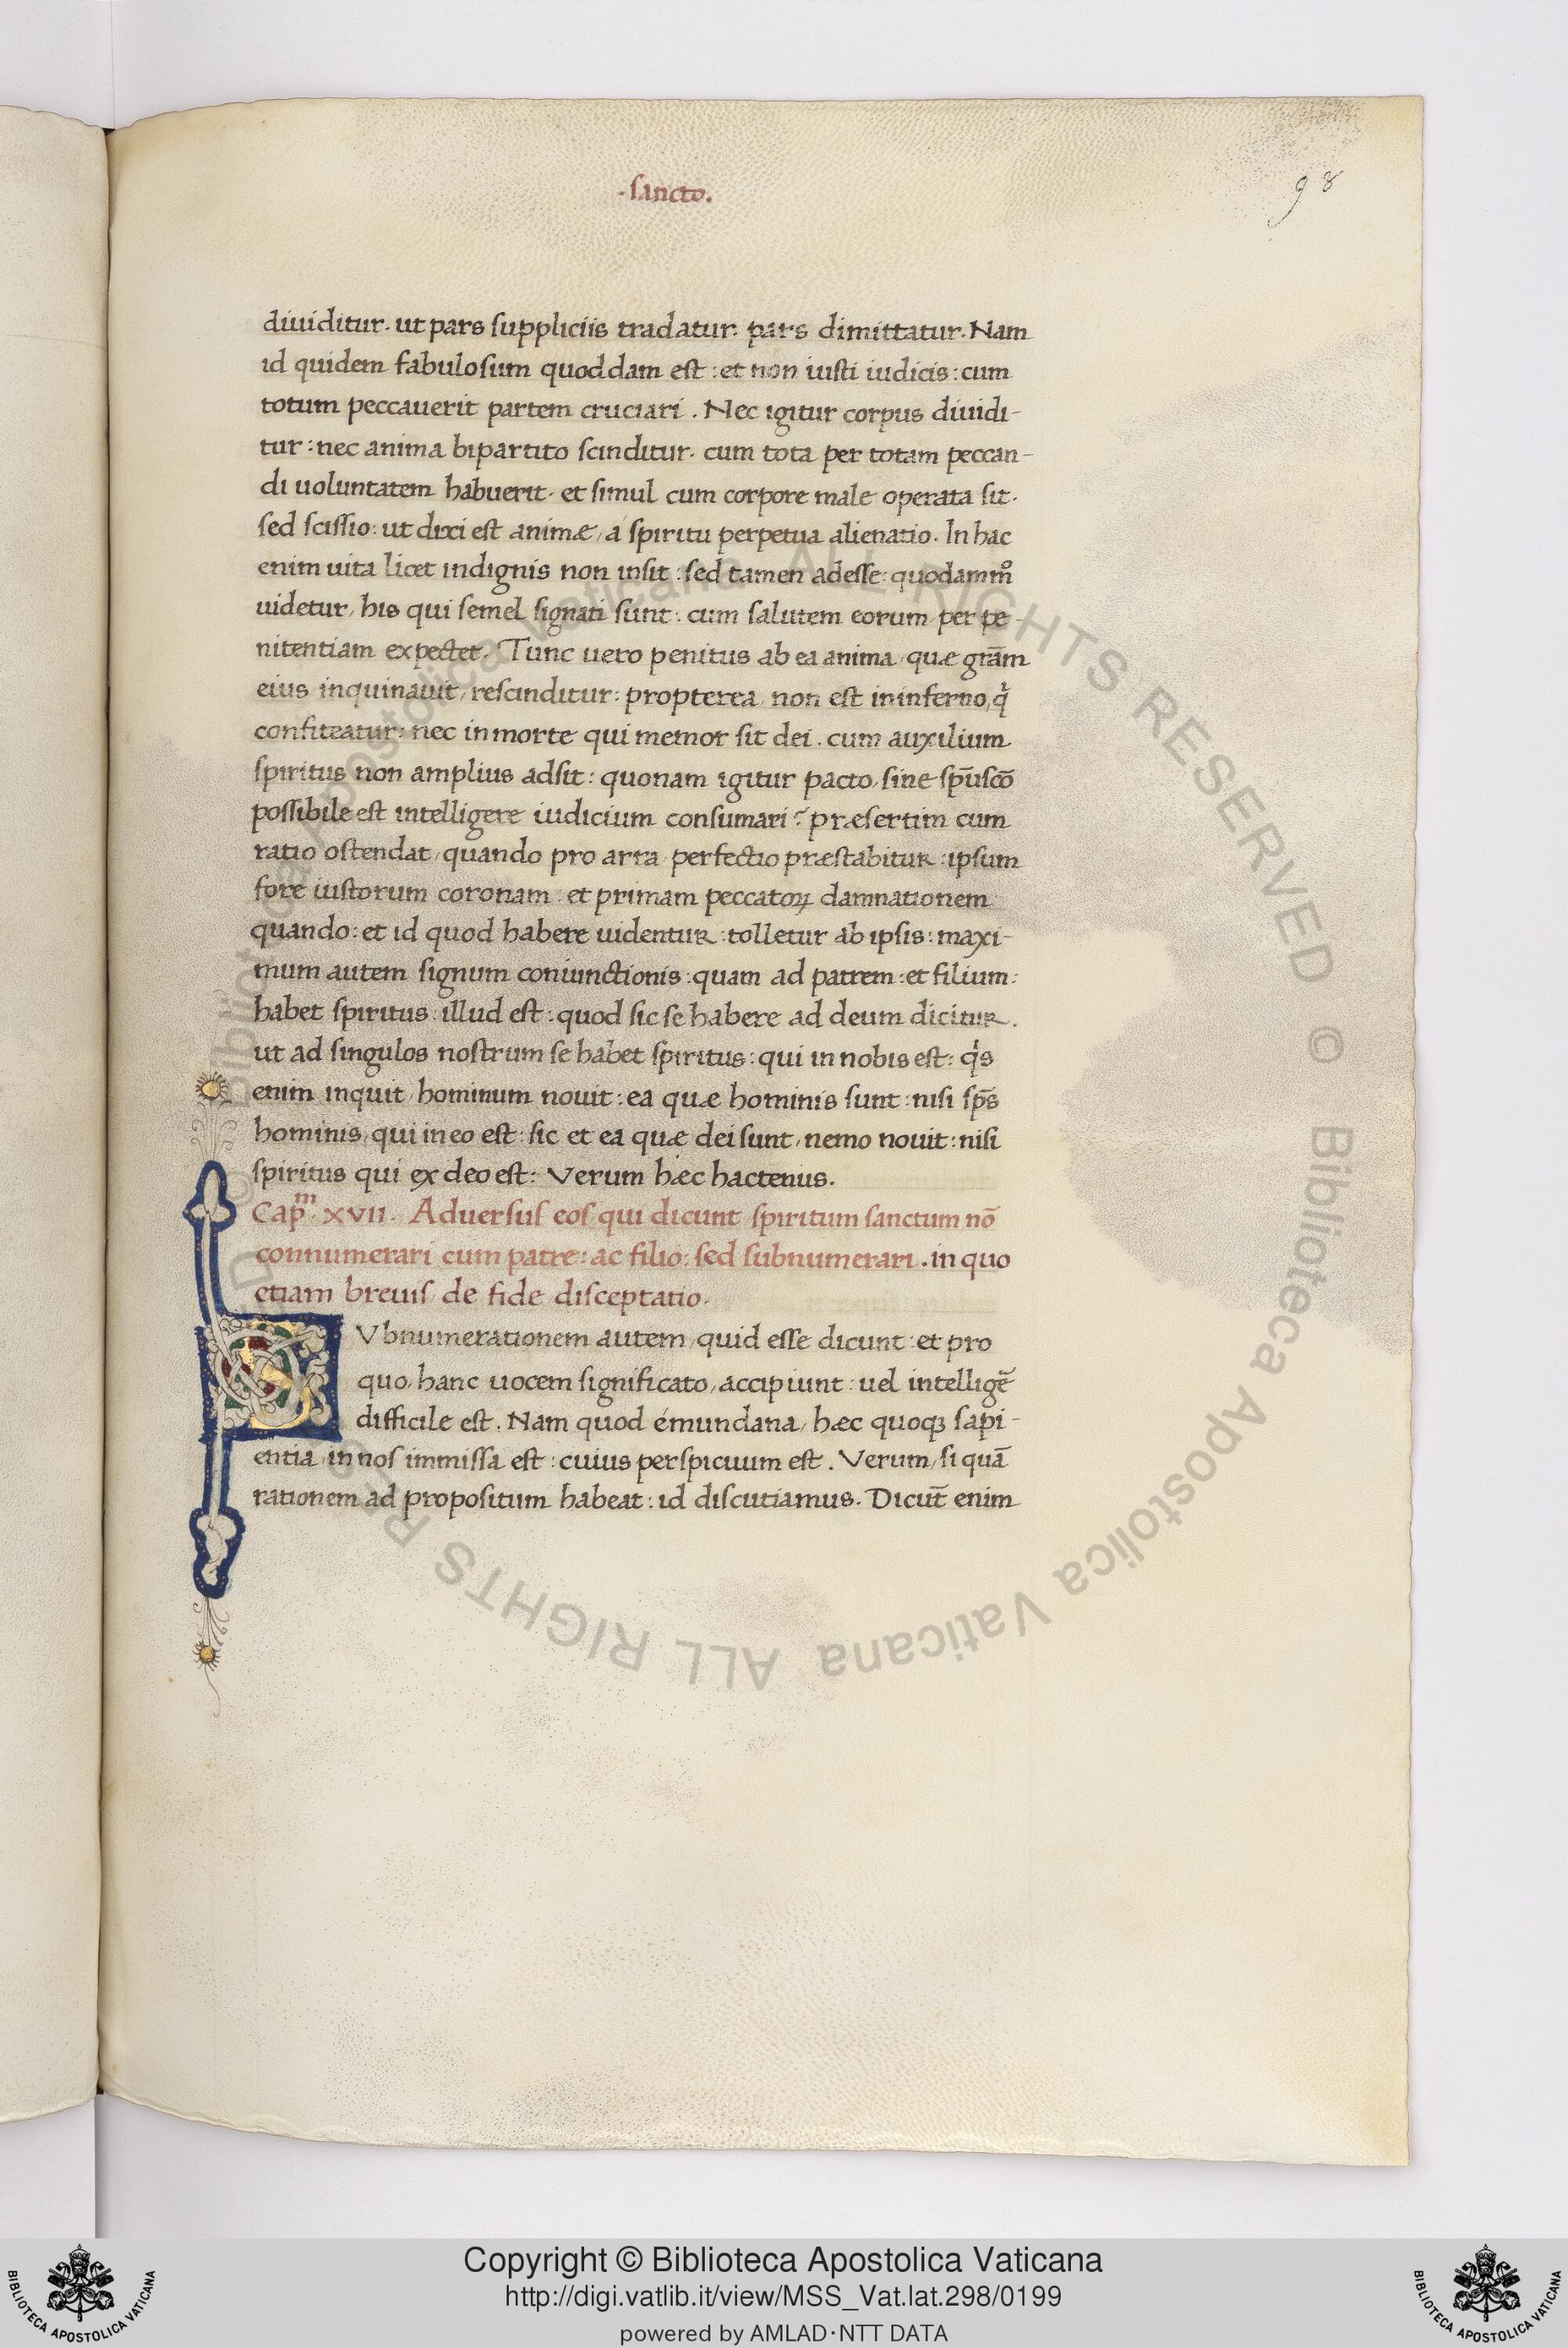 ·sancto.
98
diuiditur· ut pars suppliciis tradatur: pars dimittatur. Nam
id quidem fabulosum quoddam est: et non iusti iudicis: cum
totum peccauerit partem cruciari. Nec igitur corpus diuidi-
tur: nec anima bipartito scinditur· cum tota per totam peccan-
di uoluntatem habuerit· et simul cum corpore male operata sit·
sed scissio: ut dixi est animæ, á spiritu perpetua alienatio. In hac
enim uita licet indignis non insit: sed tamen adesse: quodammo
uidetur, his qui semel signati sunt: cum salutem eorum, per pe-
nitentiam expectet. Tunc uero penitus ab ea anima, quæ grām
eius inquinauit, rescinditur: propterea, non est in inferno, q
confiteatur: nec in morte qui memor sit dei. cum auxilium
spiritus non amplius adsit: quonam igitur pacto, sine sp̄uscō
possibile est intelligere iudicium consumari? præsertim cum
ratio ostendat, quando pro arra, perfectio præstabitur: ipsum
fore iustorum coronam: et primam peccatoꝝ damnationem
quando: et id quod habere uidentur: tolletur ab ipsis: maxi-
mum autem signum coniunctionis: quam ad patrem: et filium:
habet spiritus: illud est: quod sic se habere ad deum dicitur.
ut ad singulos nostrum se habet spiritus: qui in nobis est: qs
enim inquit, hominum nouit: ea quæ hominis sunt: nisi sp̄s
hominis, qui in eo est: sic et ea quæ dei sunt, nemo nouit: nisi
spiritus qui ex deo est: Verum hæc hactenus.
Cap^m. XVII. Aduersus eos qui dicunt spiritum sanctum nō
connumerari cum patre: ac filio: sed subnumerari. in quo
etiam breuis de fide disceptatio.
SVbnumerationem autem, quid esse dicunt: et pro
quo, hanc uocem significato, accipiunt: uel intelligē
difficile est. Nam quod é mundana, hæc quoqꝫ sapi-
entia, in nos immissa est: cuius perspicuum est. Verum, si quā
rationem ad propositum habeat: id discutiamus. Dicūt enim
© Biblioteca Apostolica Vaticana ALL RIGHTS RESERVED © Biblioteca Apostolica Vaticana ALL RIGHTS RESERVED
Copyright © Biblioteca Apostolica Vaticana
http://digi.vatlib.it/view/MSS_Vat.lat.298/0199
powered by AMLAD·NTT DATA
BIBLIOTECA APOSTOLICA VATICANA
BIBLIOTECA APOSTOLICA VATICANA